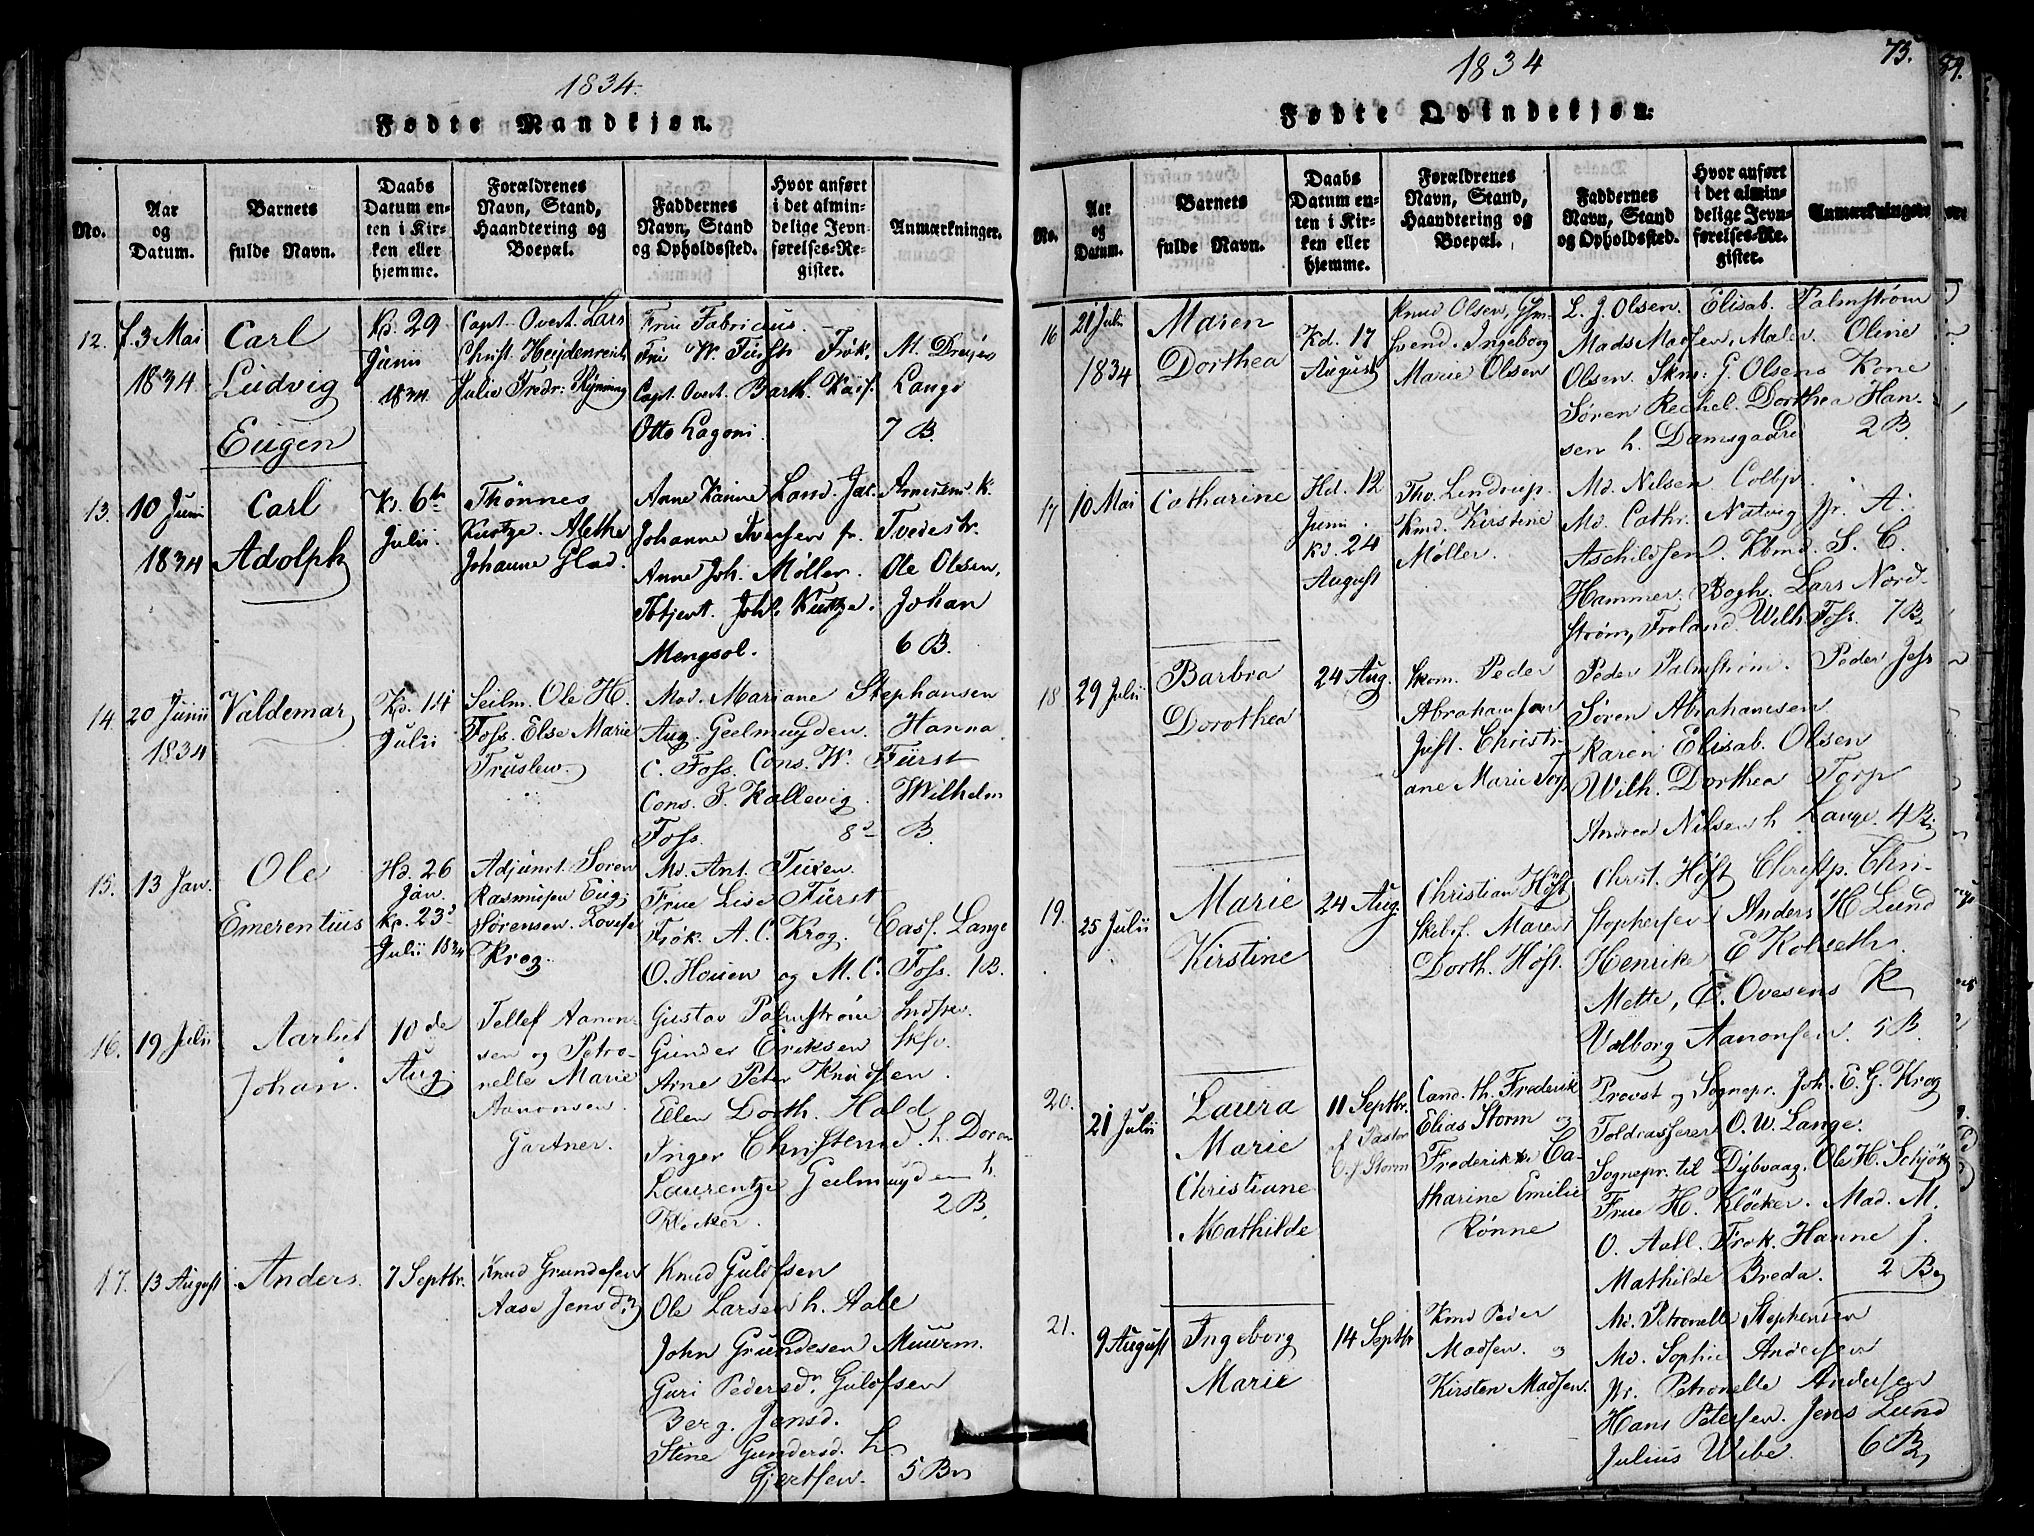 1834.
Fødte Mandkjøn.
No.
Aar og Datum.
Barnets fulde Navn.
Daabs Datum enten i Kirken eller hjemme.
Forældrenes Navn, Stand, Haandtering og Boepæl.
Faddernes Navn, Stand og Opholdssted.
Hvor anført i det almindelige Jevnførelses-Register.
Anmærkninger.
12.
f. 3 Mai
1834
Carl
Ludvig
Eugen
Kd. 29
Junii
1834
Capt. Overt. Lars
Christ. Heydenreich
Julie Fredr:
Frue Fabricius.
Frue W. Fürst Frøk. M.
Capt. Overt. Barth. Lange
Otto Lagoni. 7 B.
13.
10 Juni
1834
Carl
Adolph
Kd. 6te
Julii.
Thønnes
Kurtze. Alethe
Johanne Glad.
Anne
Johanne Iversen fr. Tvedestr.
Anne Joh. Møller. Ole Olsen,
Joh. Kurtze. Johan
Mengsol. 6 B.
14.
20 Junii
1834
Valdemar
Kd. 14
Julii
Seilm. Ole H.
Foss. Else Marie
Truslew.
Mad. Mariane Stephansen
Aug. Geelmuyden. Hanna
C. Foss. Cons. W. Fürst
Cons. S. Kallevig. Wilhelm
Foss. 8 B.
15.
13 Jan.
Ole
Emerentius
Hd. 26
Jan.
Kd. 23
Julii 1834
Adjunct. Søren
Rasmusen Eug.
Sørensen. Lovise
Krog.
Md. Ant. Tuxen.
Frue Lise Fürst
Frøk. A. C. Krog. Cass. Lange
O. Hauen og M. C. Foss. 1 B.
16.
19 Julii
Johan.
10de
Aug.
Tellef Aanon-
sen og Petro-
nelle Marie
Aanonsen.
Gartner.
Gustav Palmstrøm
Gunder Eriksen Skfv.
Arne Peter Knudsen.
Ellen Dorth. Hald
Inger Christense. h.
Laurentze Geelmuyden h.
Kløcker. 2 B.
17.
13 August
Anders.
7 Septbr.
Knud Grundesen
Aase Jensd.
Knud Gulofsen
Ole Larsen h. Aale
John Grundesen Muurm.
Guri Pedersd. Gulofsen
Berg. Jensd.
Stine Gundersd. h.
Gjertsen. 5 B.
1834
73.
Fødte Qvindekjøn.
No.
Aar og Datum.
Barnets fulde Navn.
Daabs Datum enten i Kirken eller hjemme.
Forældrenes Navn, Stand, Haandtering og Boepæl.
Faddernes Navn, Stand og Opholdssted.
Hvor anført i det almindelige Jevnførelses-Register.
Anmærkninger
16
21 Juli
1834
Maren
Dorthea
Kd. 17
August
Knud Olsen,
svend. Ingeborg
Marie Olsen
L. J. Olsen. Elisab. Palmstrøm
Mads Madsen, Maler. Oline
Olsen. Skm: G. Olsens Kone
Søren Rechel. Dorthea Han-
sen h. Damsgaard 2 B.
17
10 Mai
Catharine
Hd. 12
Juni.
Kd. 24
August
Tho. Lendrup.
Kmd. Kirstine
Møller.
Md. Nilsen Colbj.
Md. Cathr. Natvig jr. A.
Aschildsen. Kbmd. S. C.
Hammer. Bogh. Lars Nord-
strøm, Froland. Wilh. Foss. 7 B.
18
29 Julii
Barbra
Dorothea
24 Aug.
Skom. Peder
Abrahamsen
Just. Christi-
ane Marie
Peder Palmstrøm. Peder Jess
Søren Abrahamsen
Karen Elisab. Olsen
Wilh. Dorthea Torp
Andrea Nilsen h. Lange 4 B.
19.
25 Julii
Marie
Kirstine
24 Aug.
Christian Høst
Skibsf. Maren
Dorth. Høst.
Christ. Høst Christp. Chri-
stophersen Anders H Lund
Henrike E Kolseth.
Mette, E. Ovesens K
Valborg Aanonsen. 5 B.
20.
21 Julii
Laura
Marie
Christiane
Mathilde
11 Septbr.
af Pastor
Storm
Cand. th. Frederik
Elias Storm og
Frederikke Ca-
tharine Emilie
Rønne
Provst og Sognepr. Joh. E. G. Krog
Toldcasserer O. W. Lange.
Sognepr. til Dybvaag. Ole H.
Frue H. Kløcker. Mad. M.
O. Aall. Frøk. Hanne J.
Mathilde Breda. 2 B.
21.
9 August
Ingeborg
Marie
14 Septbr
Kmd Peder
Madsen. og
Kirsten Madsen.
Md. Petronelle Stephensen
Md. Sophie Andersen
jr. Petronelle Andersen
Hans Petersen. Jens Lund
Julius Wibe. 6 B.